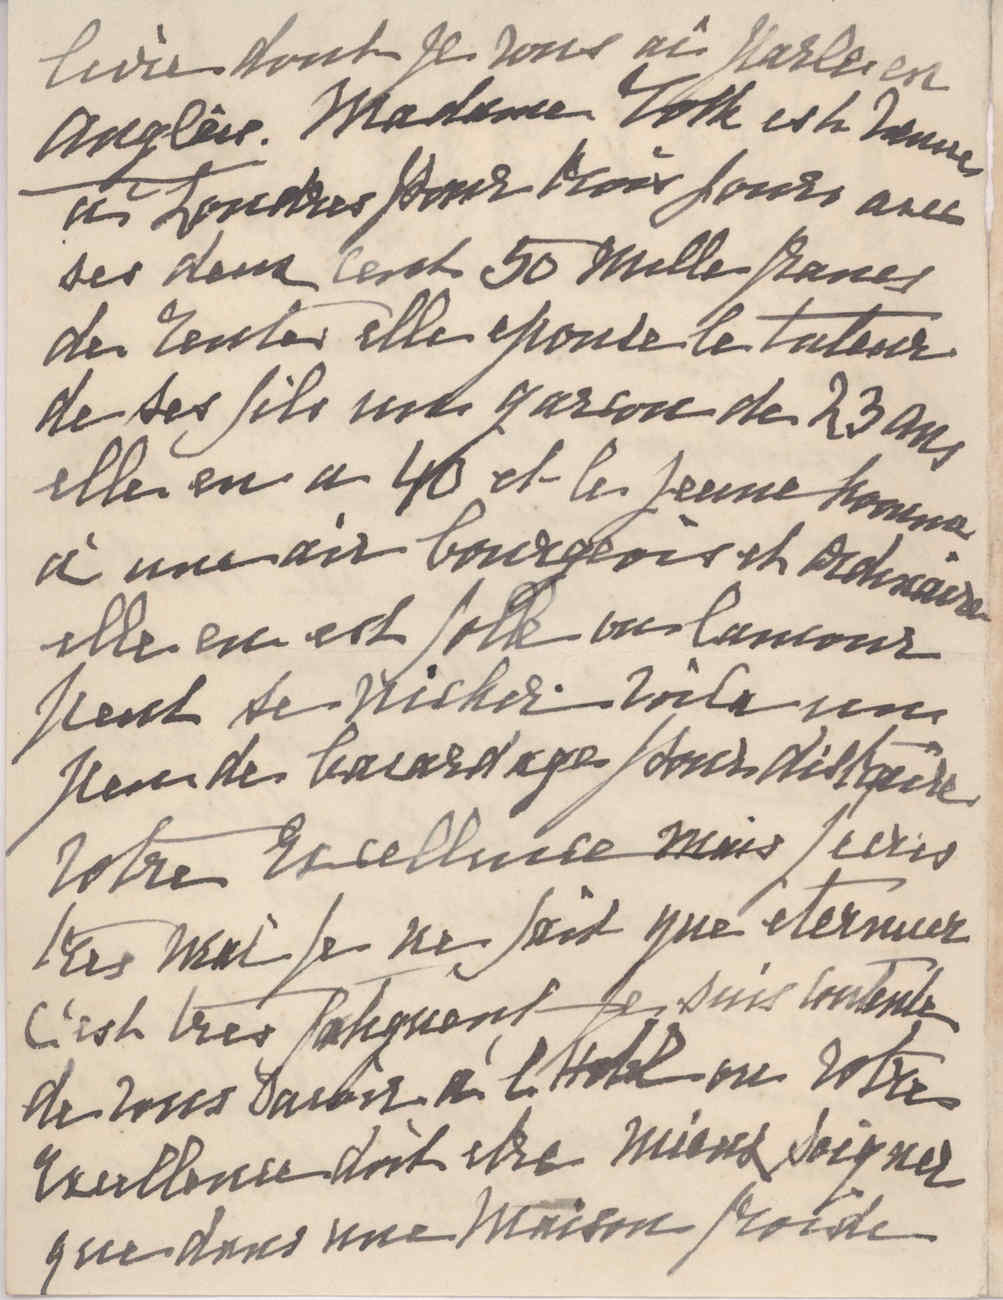 livre dont je vous ai parler en
anglais. Madame est venue
à Londres pour trois jours avec
ses deux cent 50 mille francs
de rente elle epouse le tuteur
de ses fils un garson de 23 ans
elle en a 40 et le jeune homme
à une air bourgeois et ordinaire
elle en est folle ou lamour
peut se nicher. voila un
peu de bavardage pour distraire
votre Excellence mais je vais
tres mal je ne fait que eternuer
c'est tres fatiguent je suis contente
de vous savoir à l'Hotel ou votre
Excellence doit etre mieux soigner
que dans une maison froide